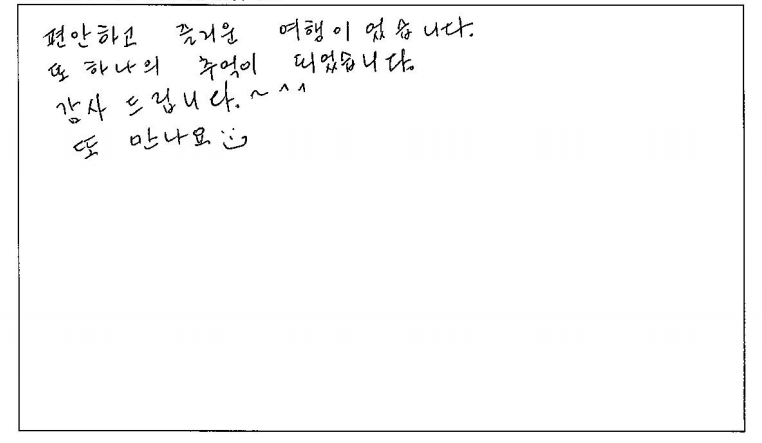 편안하고 즐거운 여행이었습니다.
또 하나의 추억이 되었습니다.
감사 드립니다.~^^
또 만나요